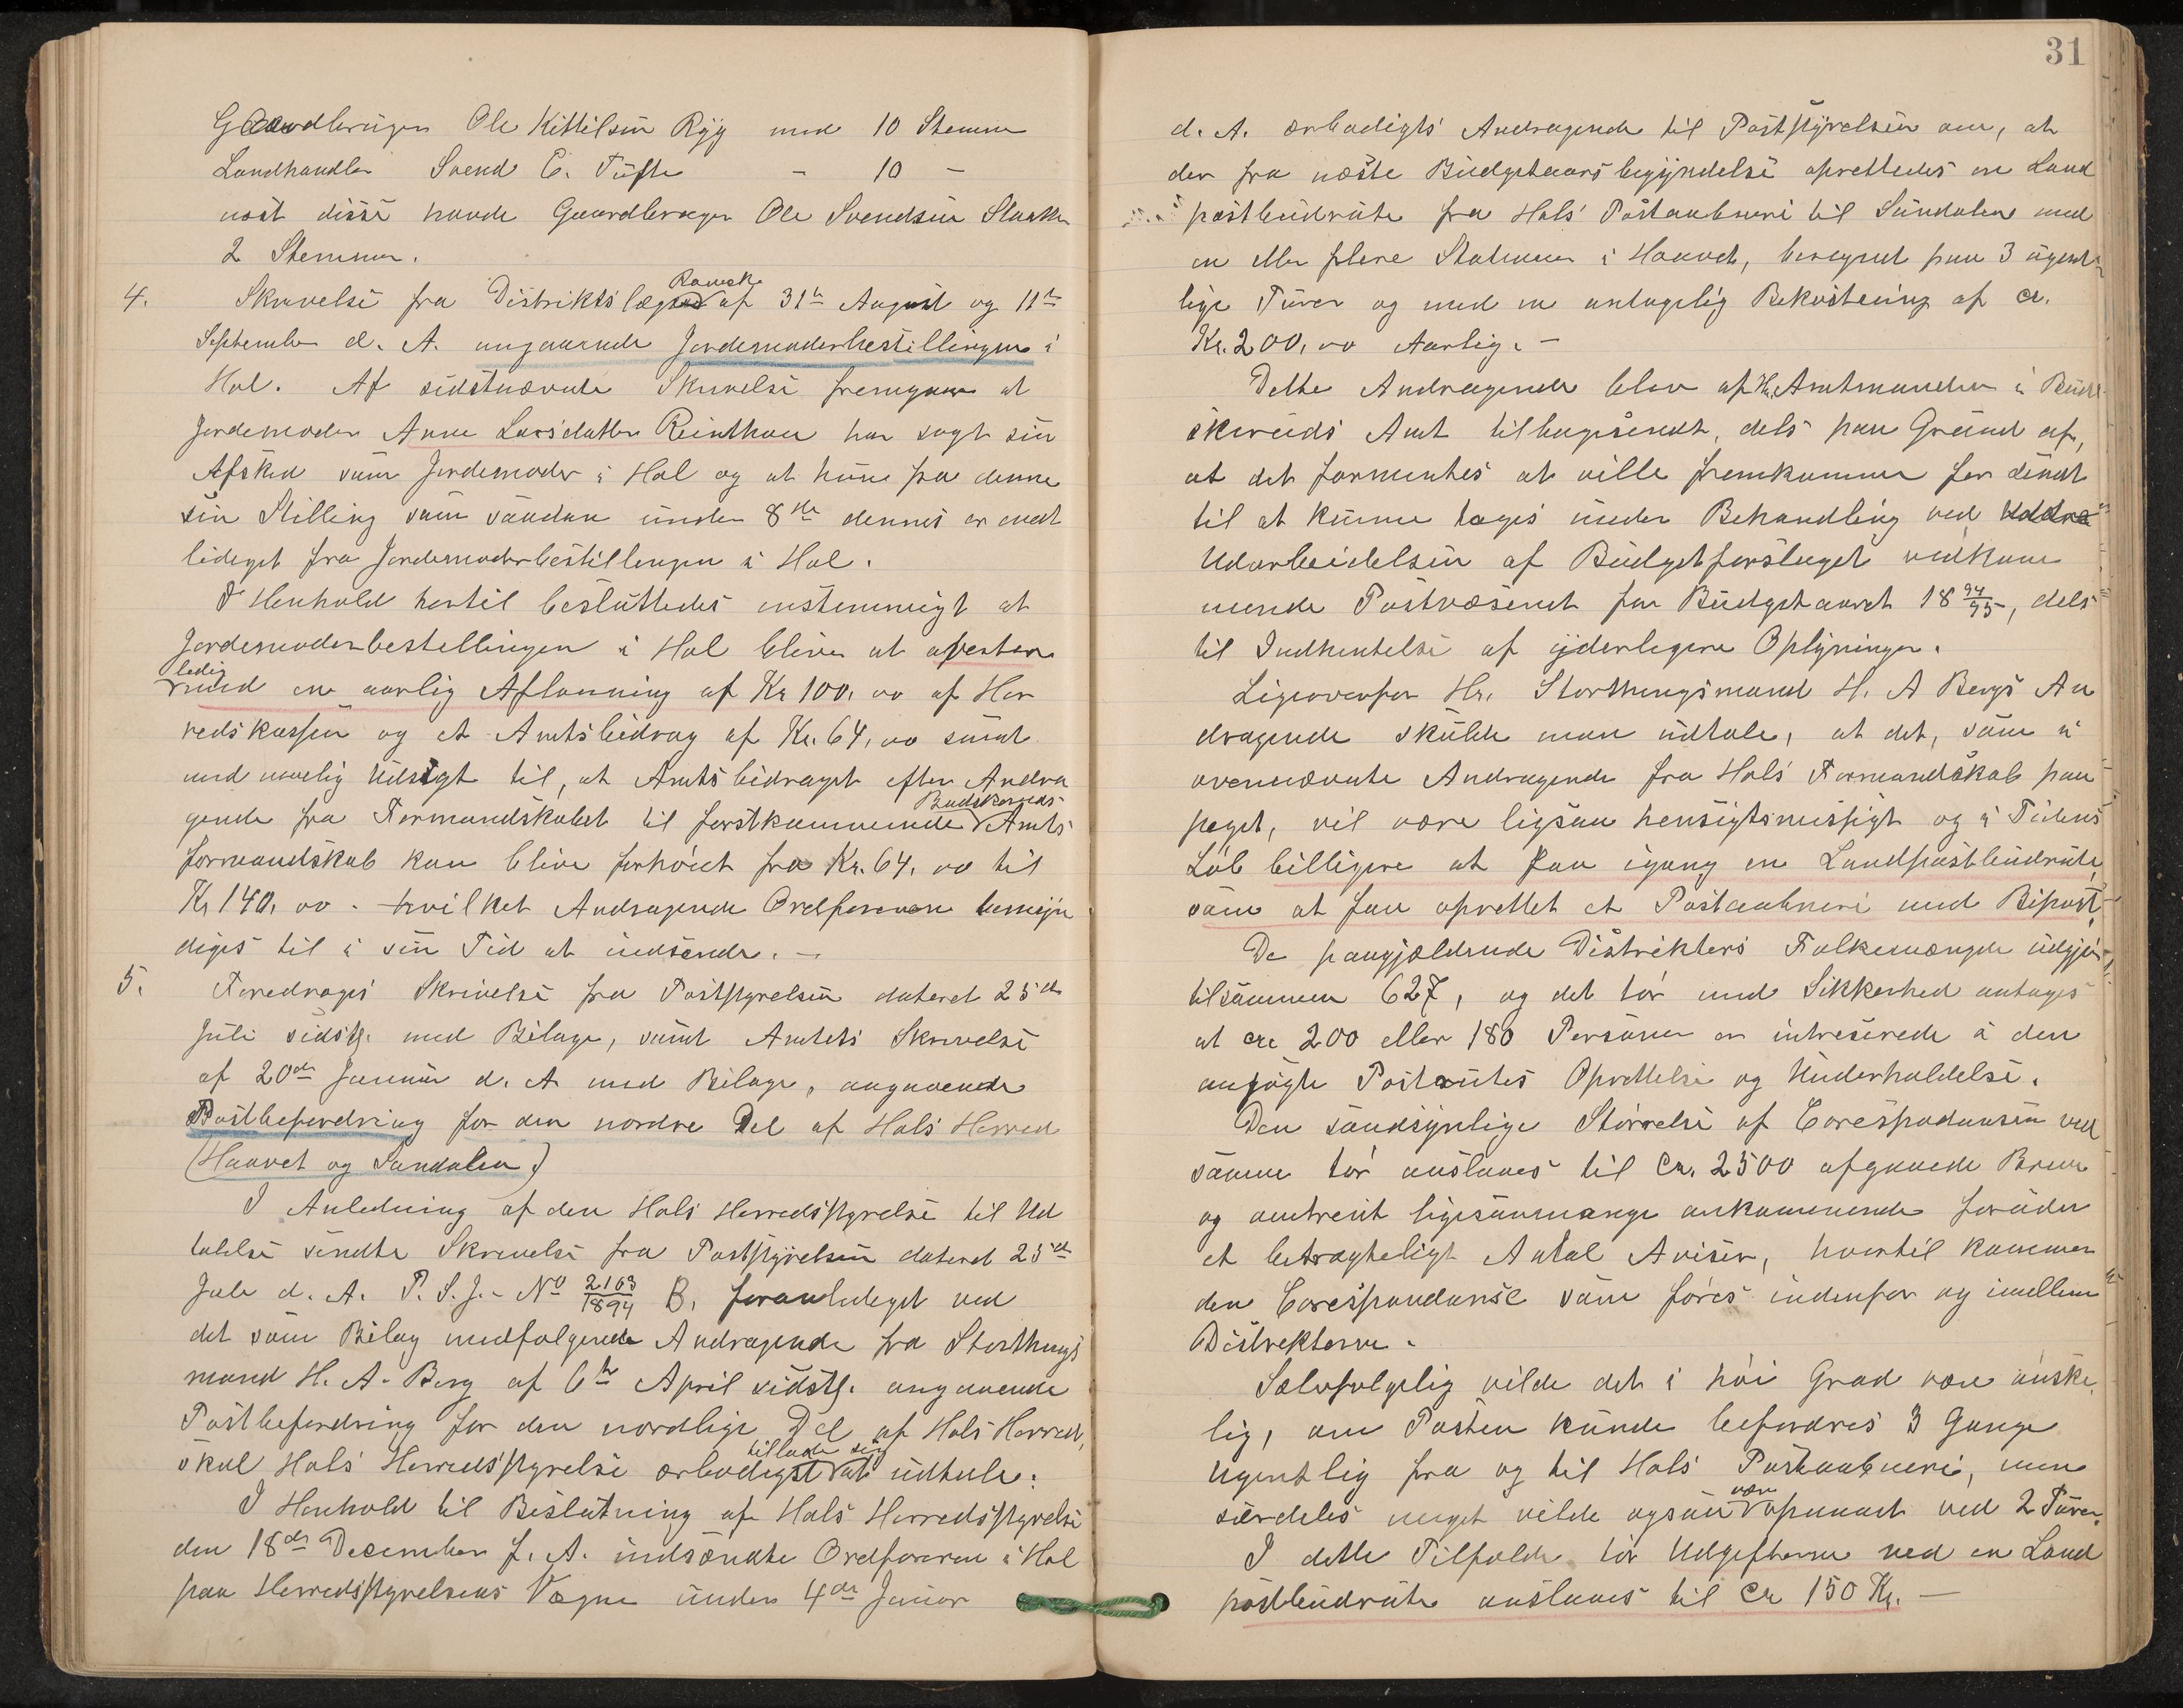 Gaardbruger Ole Kittilsen Ryg med 10 Stemmer
Landhandler Svend E. Tufte - 10 -
næst disse havde Gaardbruger Ole Svendsen Slaatten
2 Stemmer.
4. Skrivelse fra Distriktslæge Ramsk af 31te August og 11te
September d. A. angaaende Jordemoderbestillingen i
Hol. Af sidstnævnte Skrivelse fremgaar at
Jordemoder Anne Larsdatter Reinthon har søgt sin
Afsked som Jordemoder i Hol og at hun fra denne
sin Stilling som saadan under 8de dennes er ent
lediget fra Jordemoderbestillingen i Hol.
I Henhold hertil besluttedes enstemmigt at
Jordemoderbestillingen i Hol bliver at averter
ledig med en aarlig Aflønning af Kr 100,00 af Her
redskassen og et Amtsbidrag af Kr. 64,00 samt
med muelig Udsigt til, at Amtsbidraget efter Andra
gende fra Formandskabet til førstkommende Buskeruds Amts
formandskab kan blive forhøiet fra Kr. 64,00 til
Kr 140,00. - hvilket Andragende Ordføreren bemyn
diges til i sin Tid at indsende. -
5. Foredroges Skrivelse fra Poststyrelsen dateret 25de
Juli sidstl. med Bilage, samt Amtets Skrivelse
af 20de Januar d. A. med Bilage, angaaende
Postbefordring for den nordre Del af Hols Herred
(Haavet og Sundalen)
I Anledning af den Hols Herredsstyrelse til Ud
talelse sendte Skrivelse fra Poststyrelsen dateret 25de
Jule d. A. P. S. J. - No 2163/1894 B. foranlediget ved
det som Bilag medfølgende Andragende fra Storthings
mand H. A. Berg af 6te April sidstl. angaaende
Postbefordring for den nordlige Del af Hols Herred,
skal Hols Herredsstyrelse ærbødigst tillade sig at udtale:
I Henhold til Beslutning af Hols Herredsstyrelse
den 18de December f. A. indsendte Ordføreren i Hol
paa Herredsstyrelsens Vegne under 4de Januar
31
d. A. ærbødigts Andragende til Poststyrelsen om, at
der fra næste Budgetaars begyndelse oprettedes en Land
postbudrute fra Hols Postaabneri til Sundalen med
en eller flere Stationer i Haavet, beregnet paa 3 ugent
lige Turer og med en antagelig Bekostning af ca.
Kr. 200,00 Aarlig. -
Dette Andragende blev af Hr. Amtmanden i Budsk
skeruds Amt tilbagesendt, dels paa Grund af,
at det formentes at ville fremkomme for sendt
til at kunne tages under Behandling ved Uddra
Udarbeidelsen af Budgetforslaget vedkom
mende Postvæsenet for Budgetaaret 1894/95, dels
til Indhentelse af yderligere Oplyninger.
Ligeoverfor Hr. Storthingsmand H. A Bergs An
dragende skulde man udtale, at det, som i
ovennævnte Andragende fra Hols Formandskab paa
peget, vil være ligsaa hensigtsmæssigt og i Tidens
Løb billigere at faa igang en Landpostbudrute,
som at faa oprettet et Postaabneri med Bipost.
De paagjældende Distrikters Folkemængde udgjør
tilsammen 627, og det tør med Sikkerhed antages
at ca 200 eller 180 Personer er intreserede i den
ansøgte Postrutes Oprettelse og Underholdelse.
Den sandsynlige Størrelse af Corespodansen ved
samme tør anslaaes til Ca. 2500 afgaaende Breve
og omtrent ligesaamange ankommende foruden
et betragteligt Antal Aviser, hvortil kommer
den Corespondanse som føres indenfor og imellem
Distrikterne.
Selvfølgelig vilde det i høi Grad være ønske
lig, om Posten kunde befordres 3 Gange
ugentlig fra og til Hols Postaabneri, men
særdeles meget vilde ogsaa være opnaaet ved 2 Turer.
I dette Tilfælde tør Udgifterne ved en Land
postbudrute anslaaes til Ca 150 Kr. -